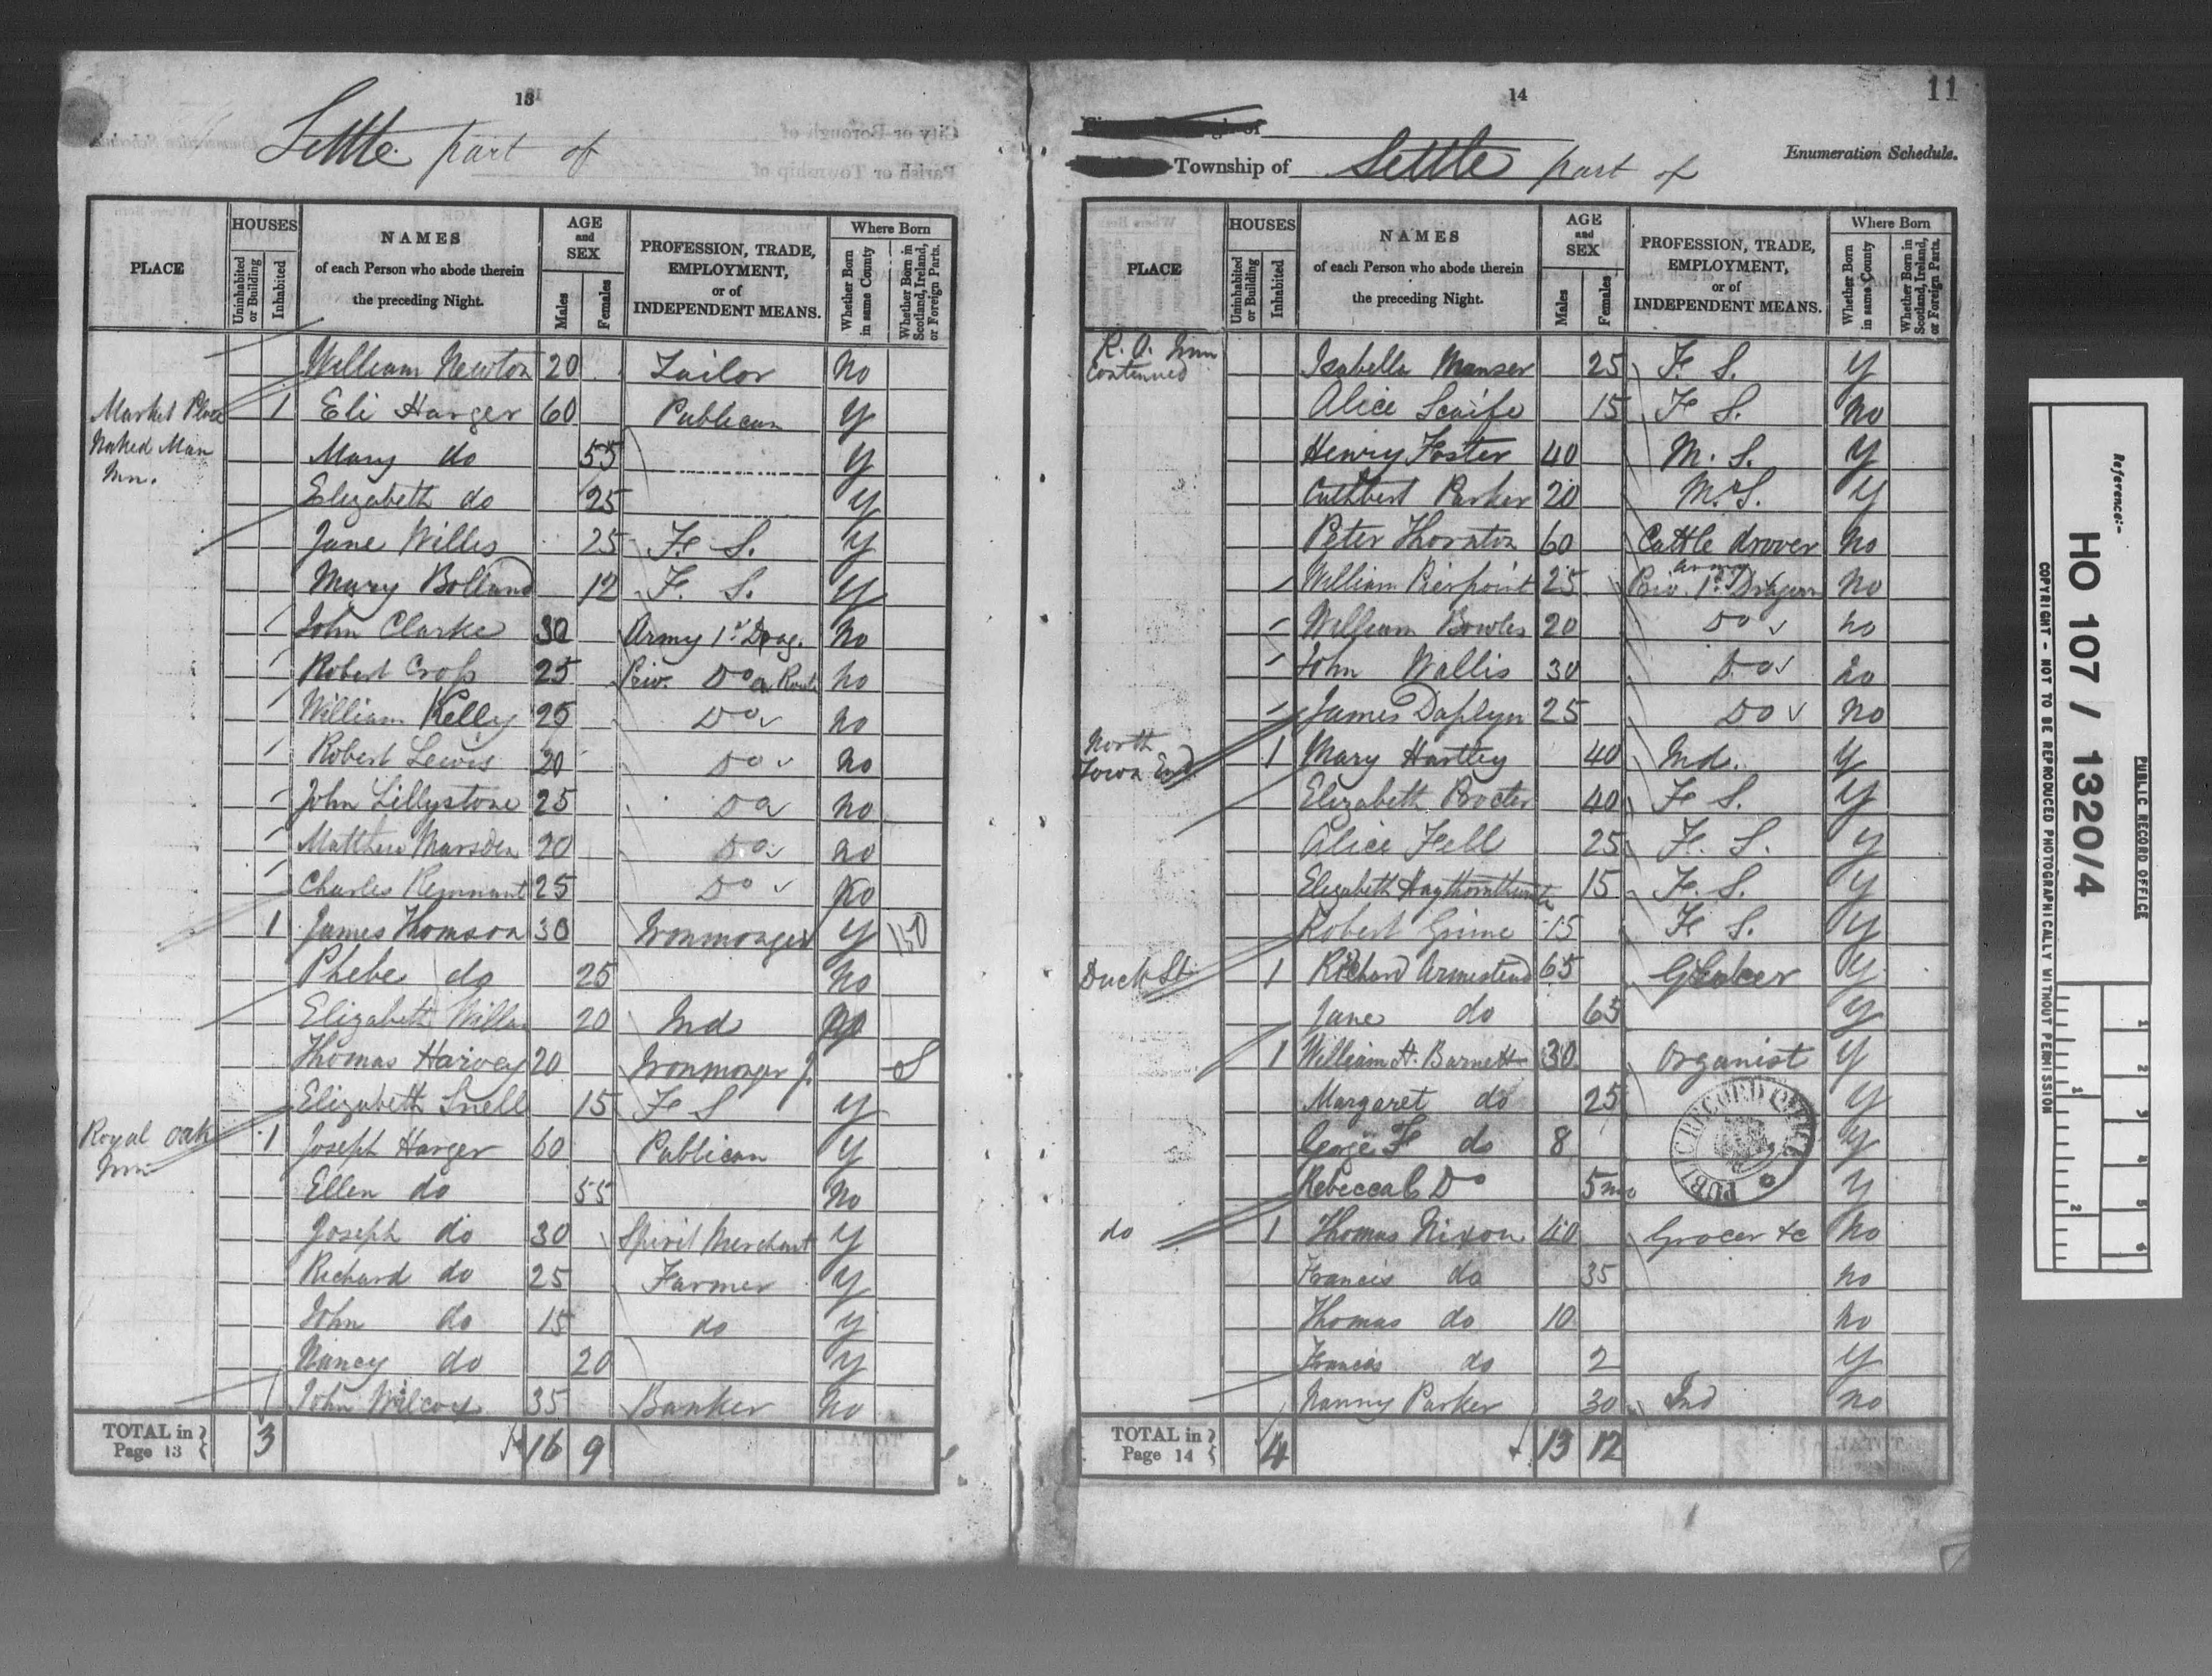 13
Settle part of
PLACE
HOUSES
Uninhabited or Building
Inhabited
NAMES
of each Person who abode therein
the preceding Night.
AGE
and
SEX
Males
Females
PROFESSION, TRADE,
EMPLOYMENT,
or of
INDEPENDENT MEANS.
Where Born
Whether Born in same County
Whether Born in Scotland, Ireland, or Foreign Parts.
William Newton 20 Tailor No
Market Place 1 Eli Harger 60 Publican Y
Naked Man Mary do 55 Y
Inn. Elizabeth do 25 Y
Jane Willis 25 F. S. Y
Mary Bolland 12 F. S. Y
John Clarke 30 Army 1st Drag. No
Robert Cross 25 Priv. Do a Route No
William Kelly 25 Do No
Robert Lewis 20 Do No
John Lillystone 25 Do No
Matthew Marsden 20 Do No
Charles Remnant 25 Do No
1 James Thomson 30 Ironmonger Y
Phebe do 25 No
Elizabeth 20 Ind
Thomas Harvey 20 Ironmonger J. S
Elizabeth Snell 15 F S Y
Royal Oak Inn 1 Joseph Harger 60 Publican Y
Ellen do 55 No
Joseph do 30 Spirit Merchant Y
Richard do 25 Farmer Y
John do 15 do Y
Nancy do 20 Y
John Wilcox 35 Banker No
TOTAL in Page 13 3 16 9
14
11
Township of Settle part of
Enumeration Schedule.
PLACE
HOUSES
Uninhabited or Building
Inhabited
NAMES
of each Person who abode therein
the preceding Night.
AGE
and
SEX
Males
Females
PROFESSION, TRADE,
EMPLOYMENT,
or of
INDEPENDENT MEANS.
Where Born
Whether Born in same County
Whether Born in Scotland, Ireland, or Foreign Parts.
R. O. Inn Isabella Manser 25 F. S. Y
Continued Alice Scaife 15 F S. No
Henry Foster 40 M. S. Y
Cuthbert Parker 20 M. S. Y
Peter Thornton 60 Cattle drover No
William Pierpoint 25 Army Priv. 1st Dragoon No
William Bowles 20 Do No
John Wallis 30 Do No
James Daplyn 25 Do No
North Town End 1 Mary Hartley 40 Ind. Y
Elizabeth Procter 40 F S. Y
Alice Fell 25 F. S. Y
Elizabeth Haythornthwaite 15 F. S. Y
Robert Grime 15 F S. Y
Duck St. 1 Richard Armistead 65 Y
Jane do 65 Y
1 William H. Barnett 30 Organist Y
Margaret do 25 Y
George F do 8 Y
Rebecca C Do 5 mo Y
do 1 Thomas Nixon 40 Grocer &c No
Francis do 35 No
Thomas do 10 No
Francis do 2 Y
Nanny Parker 30 Ind No
TOTAL in Page 14 4 13 12
PUBLIC RECORD OFFICE
Reference:-
HO 107 / 1320/4
PUBLIC RECORD OFFICE
COPYRIGHT - NOT TO BE REPRODUCED PHOTOGRAPHICALLY WITHOUT PERMISSION